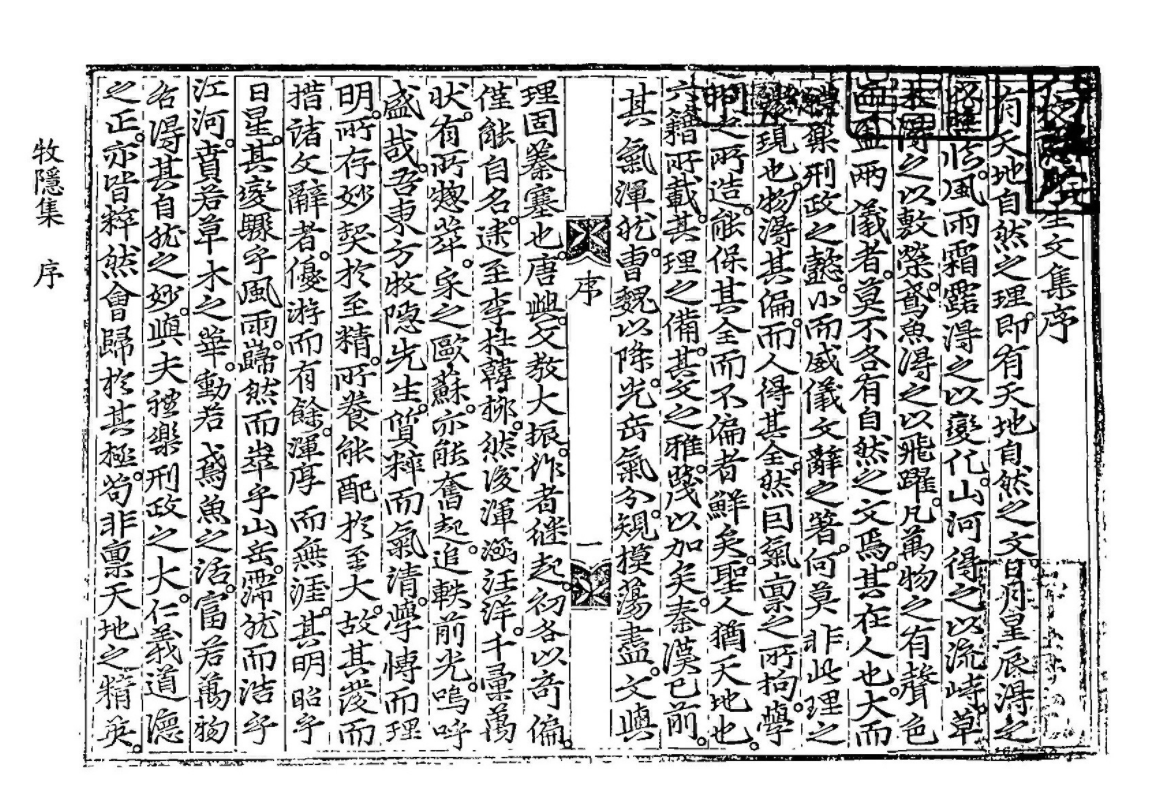 生文集序
有天地自然之理。即有天地自然之文。日月星辰得之
以照臨。風雨霜露得之以變化。山河得之以流峙。草
木得之以敷榮。鳶魚得之以飛躍。凡萬物之有聲色
而盈兩儀者。莫不各有自然之文焉。其在人也。大而
禮樂刑政之懿。小而威儀文辭之著。何莫非此理之
發現也。物得其偏。而人得其全。然因氣稟之所拘。學
問之所造。能保其全而不偏者鮮矣。聖人猶天地也。
六籍所載。其理之備。其文之雅。蔑以加矣。秦漢已前。
其氣渾然。曹魏以降。光岳氣分。規模蕩盡。文與
序 一
理固蓁塞也。唐興。文教大振。作者継起。初各以奇偏。
僅能自名。逮至李杜韓柳。然後渾涵汪洋。千彙萬
狀。有所總萃。宋之歐蘇。亦能奮起。追軼前光。嗚呼
盛哉。吾東方牧隐先生。質粹而氣清。學博而理
明。所存妙契於至精。所養能配於至大。故其發而
措諸文辭者。優游而有餘。渾厚而無涯。其明昭乎
日星。其變驟乎風雨。巋然而萃乎山岳。霈然而浩乎
江河。賁若草木之華。動若鳶魚之活。富若萬物
各得其自然之妙。與夫禮樂刑政之大。仁義道德
之正。亦皆粹然會歸於其極。苟非禀天地之精英。
牧隱集 序